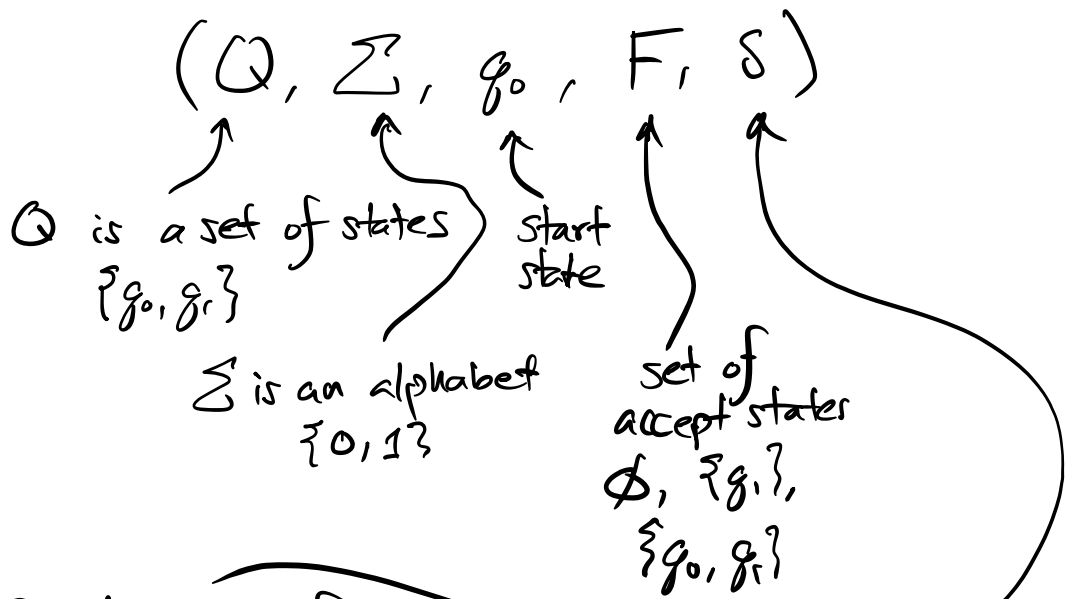 (Q, Σ, q₀, F, δ)
Q is a set of states
{q₀, q₁}
start
state
Σ is an alphabet
{0, 1}
set of
accept states
ϕ, {q₁},
{q₀, q₁}